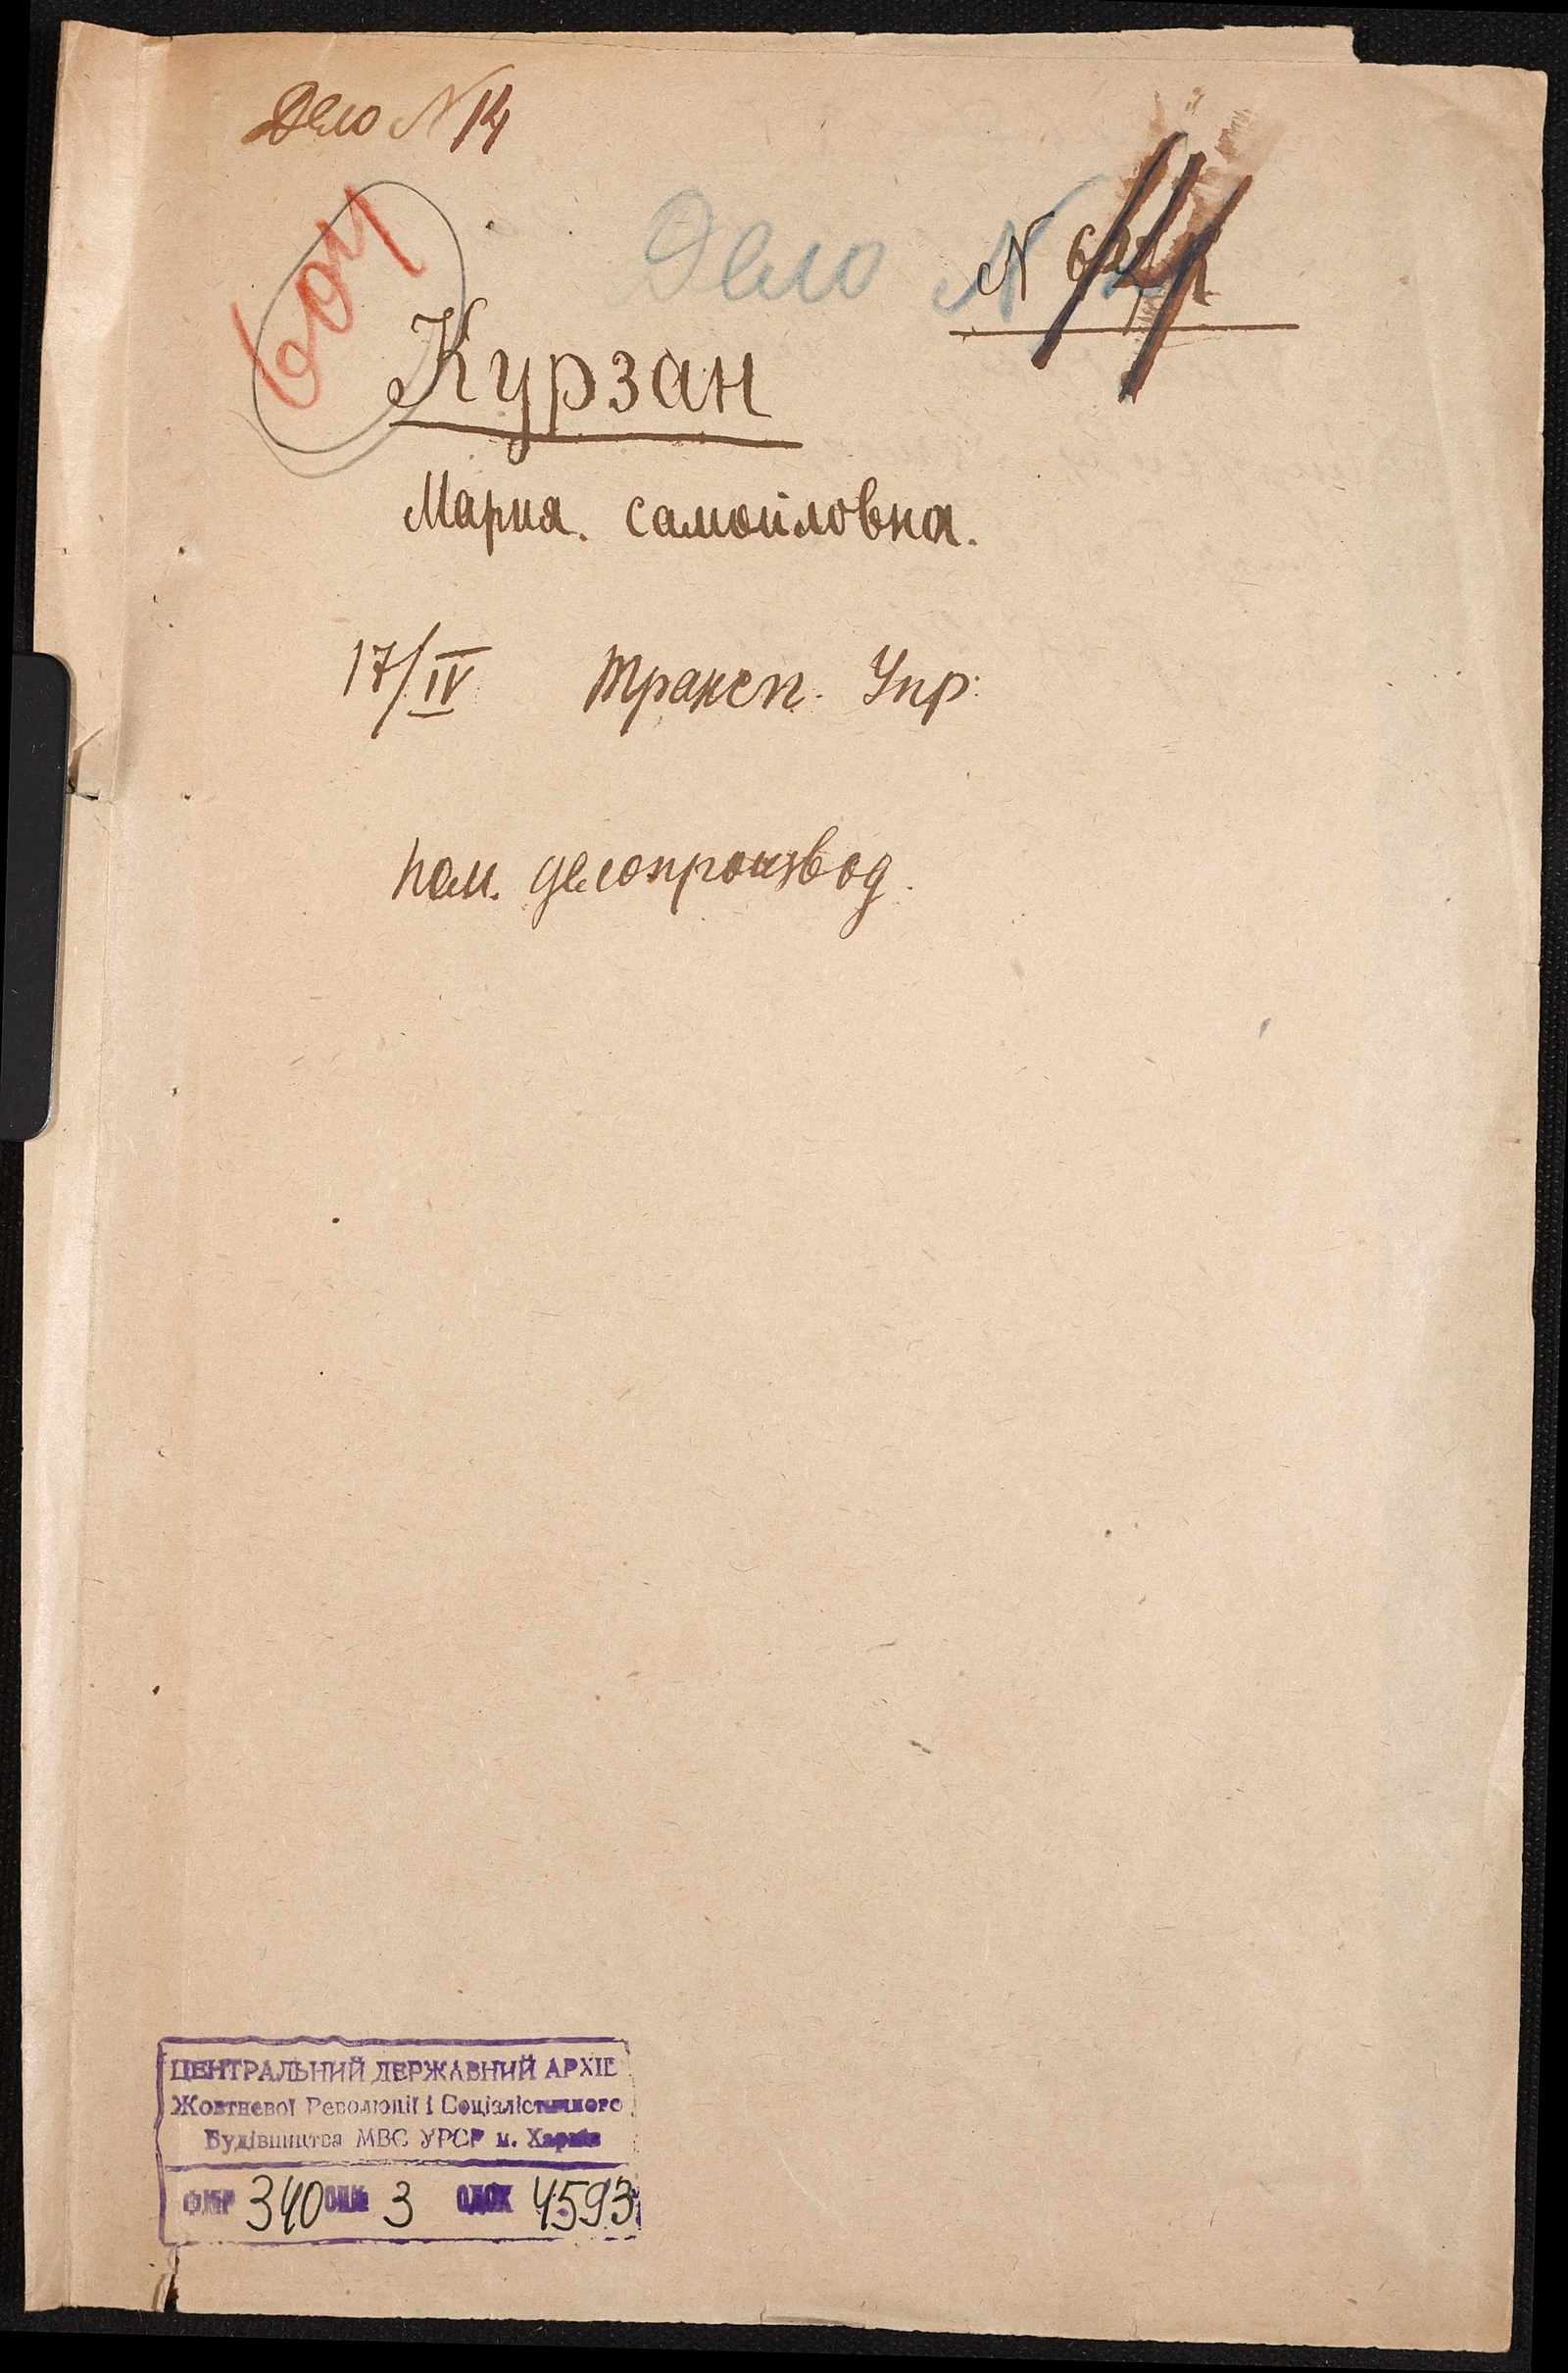 Дело N 14
604
Дело N
Курзан
Мария. самойловна.
17/IV трансп. Упр.
пом. делопроизвод.
ЦЕНТРАЛЬНИЙ ДЕРЖАВНИЙ АРХІВ
Жовтневої Революції і Соціалістичного
Будівництва МВС УРСР м. Харків
Ф.№Р 340 ОП.№ 3 ОД.ЗХ 4593